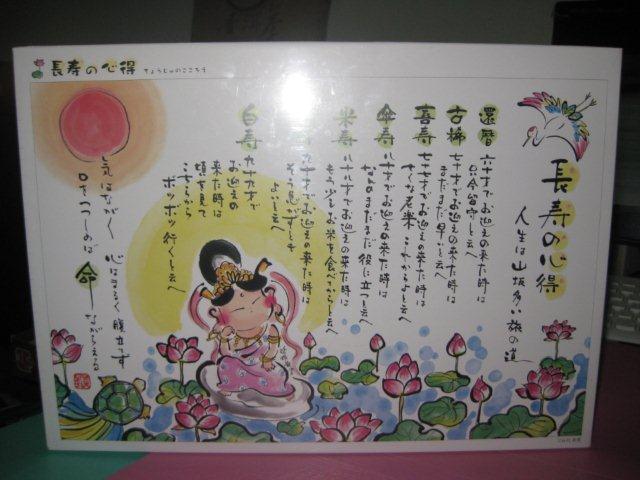 長寿の心得 ちょうじゅのこころう
長寿の心得
人生は山坂多い旅の道
還暦
六十才でお迎えの来た時は
只今留守と云へ
古稀
七十才でお迎えの来た時は
まだまだ早いと云へ
喜寿
七十七才でお迎えの来た時は
せくな老楽 これからよと云へ
傘寿
八十才でお迎えの来た時は
なんのまだまだ役に立つと云へ
米寿
八十八才でお迎えの来た時は
もう少しお米を食べてからと云へ
寿
九十才でお迎えの来た時は
そう急がずとも
よいと云へ
白寿
九十九才で
お迎えの
来た時は
頃を見て
こちらから
ボツボツ行くと云へ
気はながく 心はまるく腹立てず
口をつつしめば命ながらえる